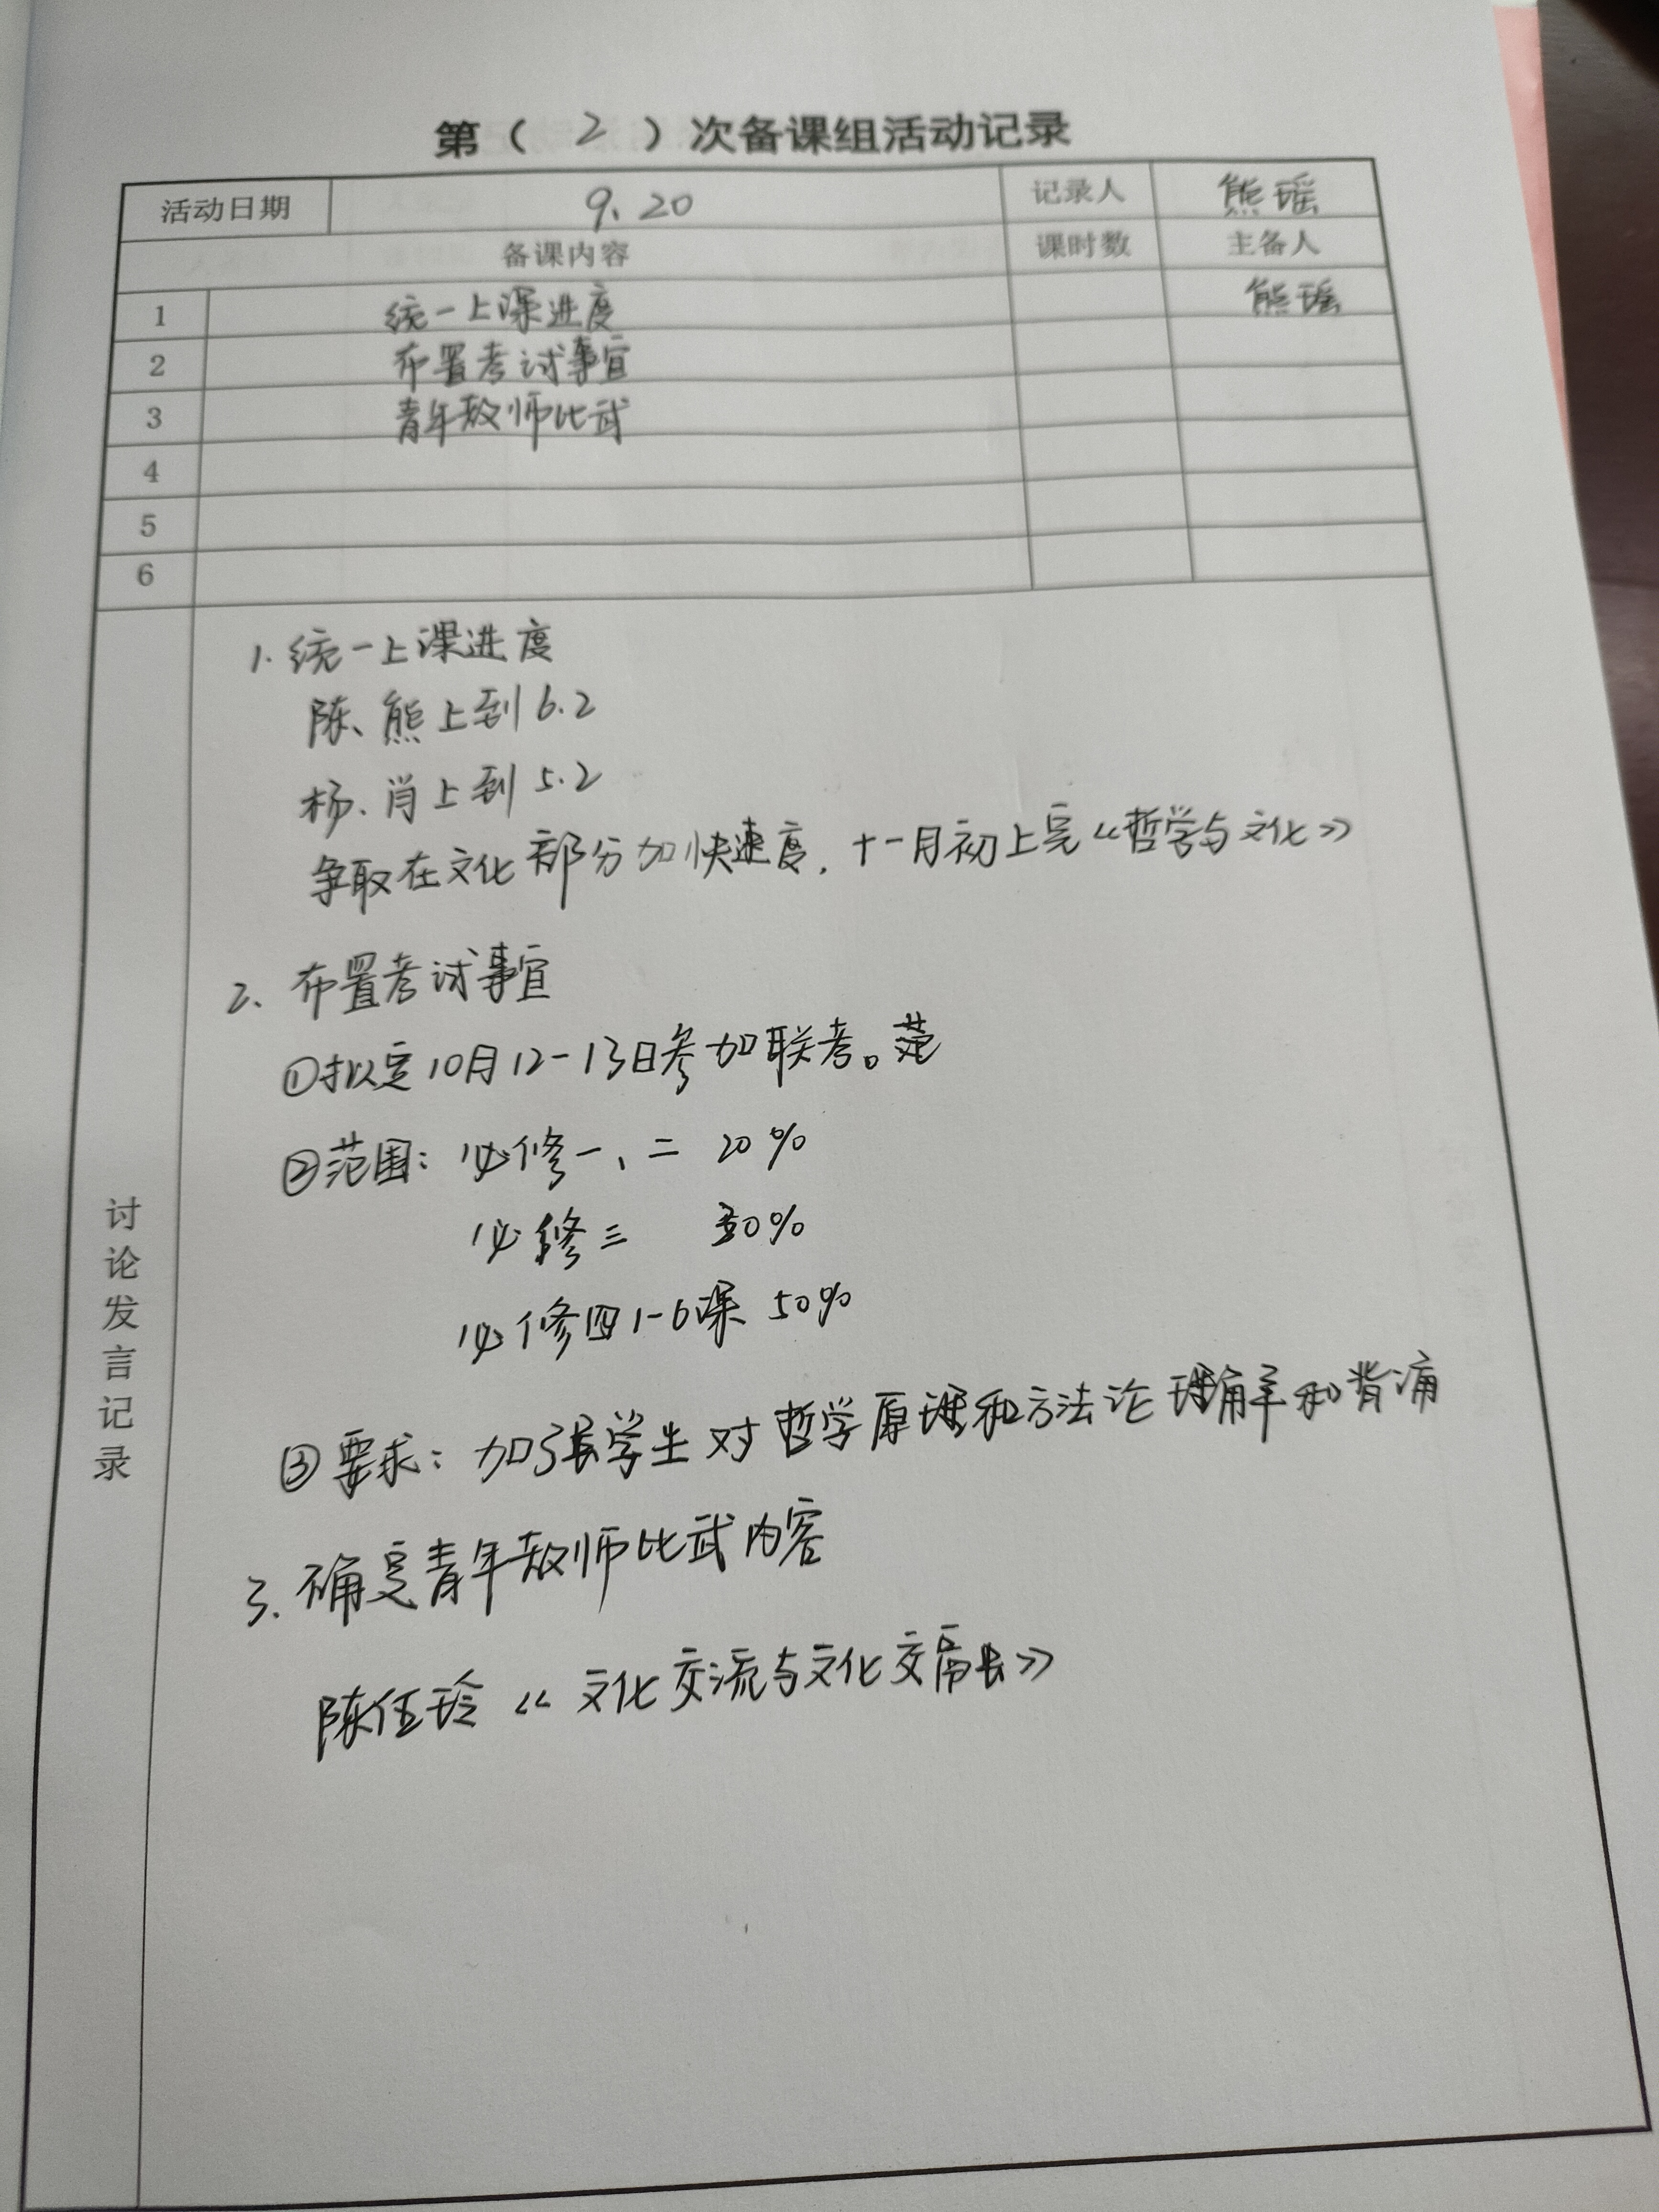 第（ 2 ）次备课组活动记录
活动日期 9、20 记录人 熊瑶
备课内容 课时数 主备人
1 统一上课进度 熊瑶
2 布置考试事宜
3 青年教师比武
4
5
6
讨论发言记录
1. 统一上课进度
陈、熊上到6.2
杨、肖上到5.2
争取在文化部分加快速度，十一月初上完《哲学与文化》
2、布置考试事宜
①拟定10月12-13日参加联考。范
②范围：必修一、二 20%
必修三 30%
必修四1-6课 50%
③要求：加强学生对哲学原理和方法论理解和背诵
3、确定青年教师比武内容
陈伍玲《文化交流与文化交融》